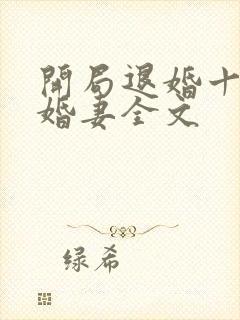 開局退婚十
婚妻全文
绿希